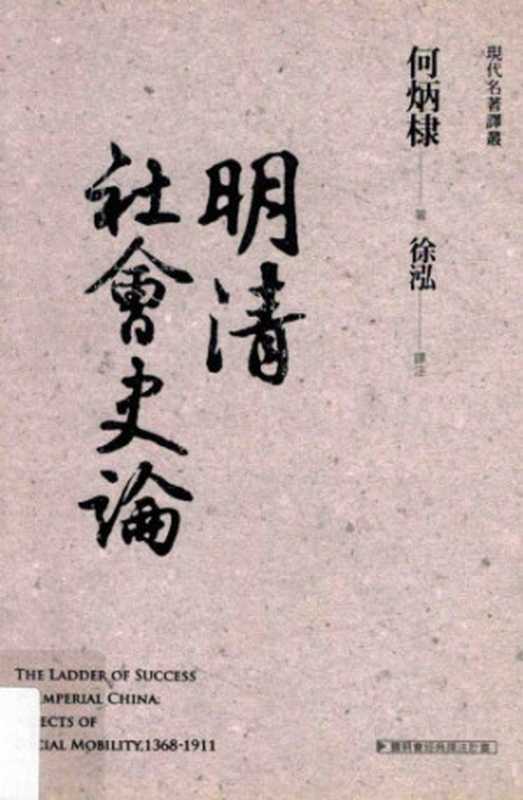 現代名著譯叢
何炳棣 著 徐泓 譯注
明清
社會史論
THE LADDER OF SUCCESS
IMPERIAL CHINA:
ECTS OF
CIAL MOBILITY, 1368-1911
國科會經典譯注計畫